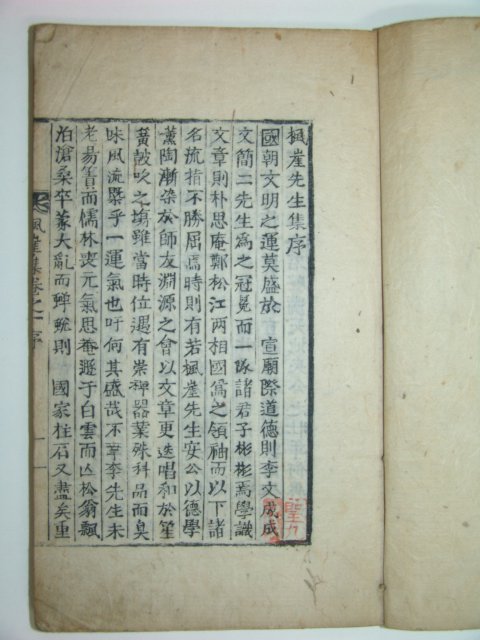 楓崖先生集序
國朝文明之運莫盛於 宣廟際道德則李文成成
文簡二先生爲之冠冕而一隊諸君子彬彬焉學識
文章則朴思庵鄭松江兩相國爲之領袖而以下諸
名流指不勝屈焉時則有若楓崖先生安公以德學
薰陶漸染於師友淵源之會以文章更迭唱和於笙
簧鼓吹之場雖當時位遇有崇神器業殊科品而臭
味風流槩乎一運氣也吁何其盛哉不幸李先生未
老易簀而儒林喪元氣思菴遯于白雲而亡松翁飄
泊滄桑卒蒙大亂而蟬蛻則 國家柱石又盡矣重
楓崖集卷之一 序 一